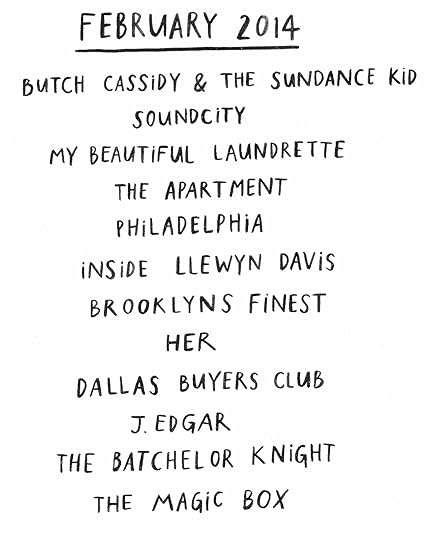 FEBRUARY 2014
BUTCH CASSiDY & THE SUNDANCE KiD
SOUNDCiTY
MY BEAUTiFUL LAUNDRETTE
THE APARTMENT
PHiLADELPHiA
iNSiDE LLEWYN DAViS
BROOKLYNS FiNEST
HER
DALLAS BUYERS CLUB
J. EDGAR
THE BATCHELOR KNiGHT
THE MAGiC BOX